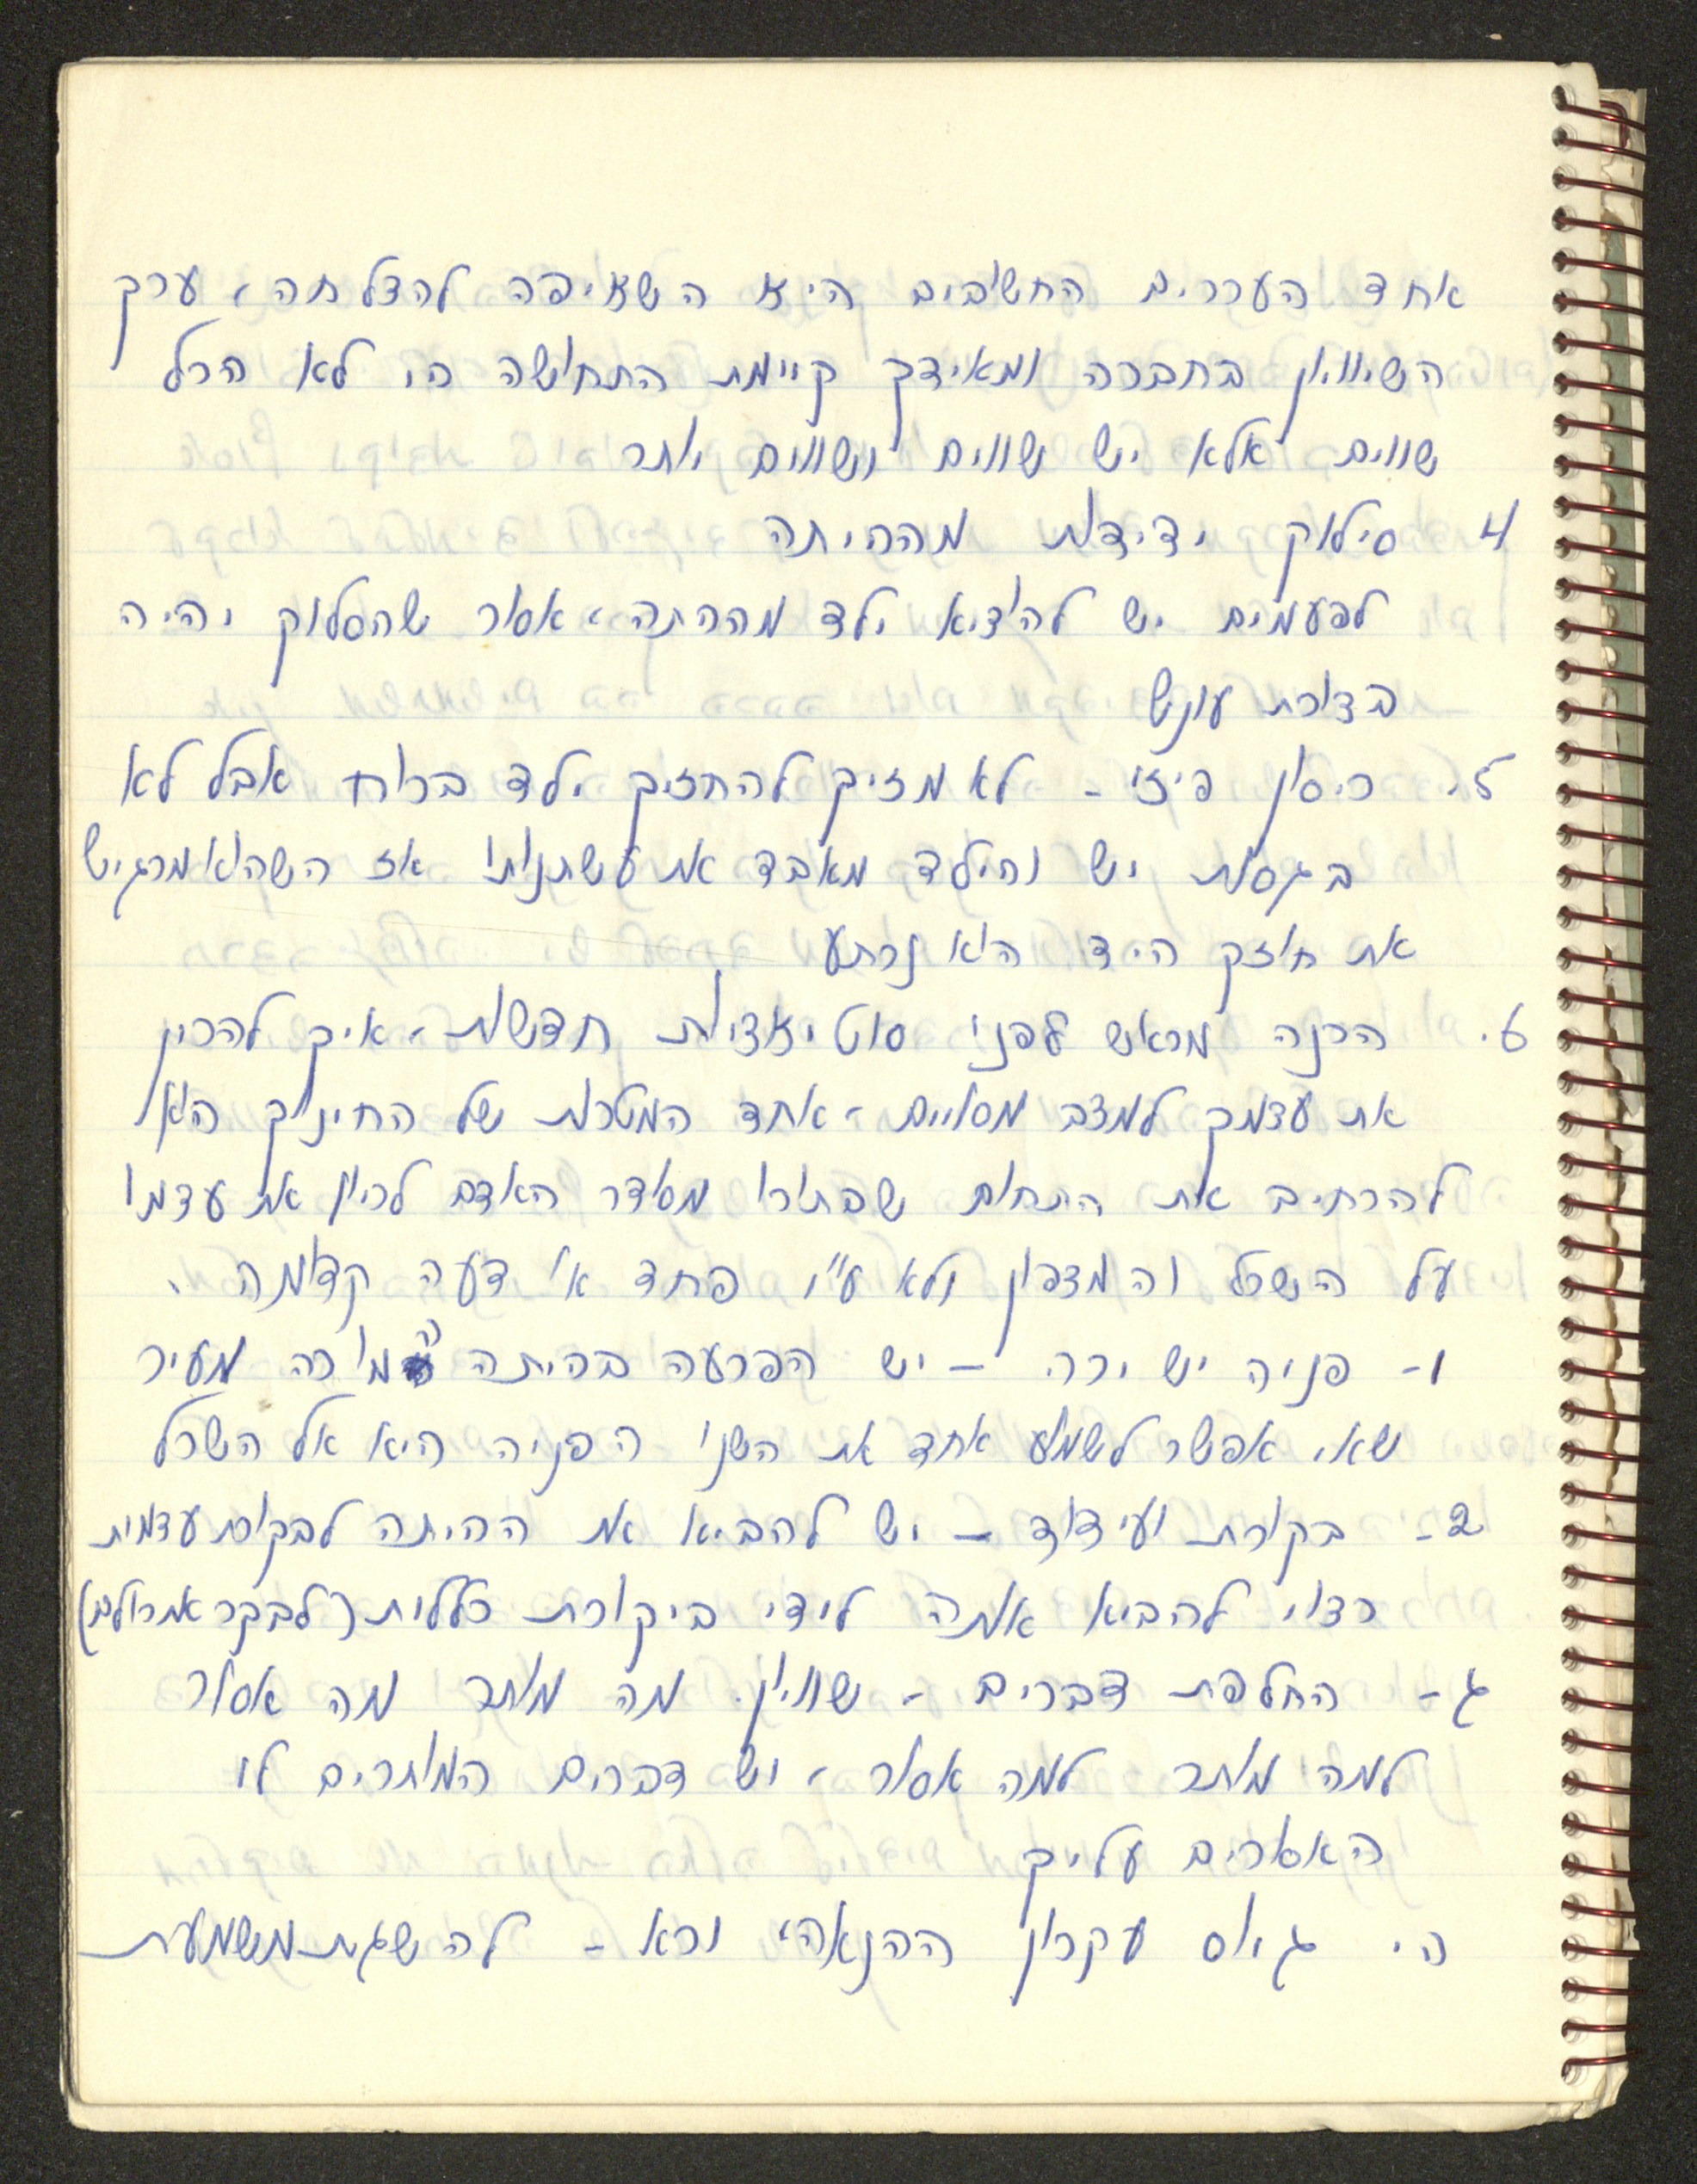 אחד הערכים החשובים היא השאיפה להצלחה, ערך
השיוויון בחברה ומאידך קיימת התחושה כי לא הכל
שווים אלא יש שווים ושווים יותר
4 סילוק ידידותי מהכיתה
לפעמים יש להוציא ילד מהכתה, אסור שהסלוק יהיה
בצורת עונש
5. ריסון פיזי - לא מזיק להחזיק ילד בכוח אבל לא
בגסות יש והילד מאבד את עשתנותיו אז כשהוא מרגיש
את חוזק היד הוא נרתע
6. הכנה מראש לפני סוטיאציות חדשות, איך להכין
את עצמך למצב מסויים, אחד המטרות של החינוך הוא
להרחיב את התחום שבתוכו מסודר האדם לכוון את עצמו
על השכל והמצפון ולא ע"י פחד או דעה קדומה.
1- פניה ישירה - יש הפרעה בכיתה המורה מעיר
שאי אפשר לשמוע אחד את השני הפניה היא אל השכל
2- בקורת ועידוד - יש להביא את הכיתה לבקורת עצמית
רצוי להביא אותה לידי ביקורת כללית (לבקר את כולם)
ג- החלפת דברים - שוויון. מה מותר מה אסור
למה מותר למה אסור, ויש דברים המותרים לו
האסורים עליך
ה. גיוס עקרון ההנאה, וכא - להשגת משמעת